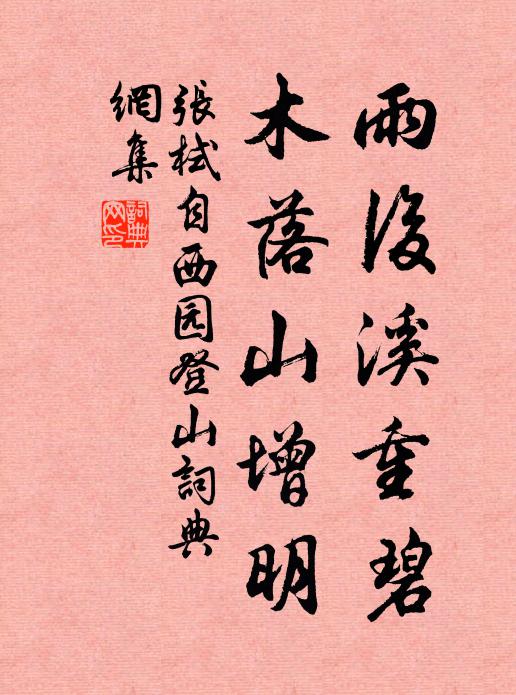 雨後溪重碧
木落山增明
張栻自西园登山詞典
網集
詞典
网印